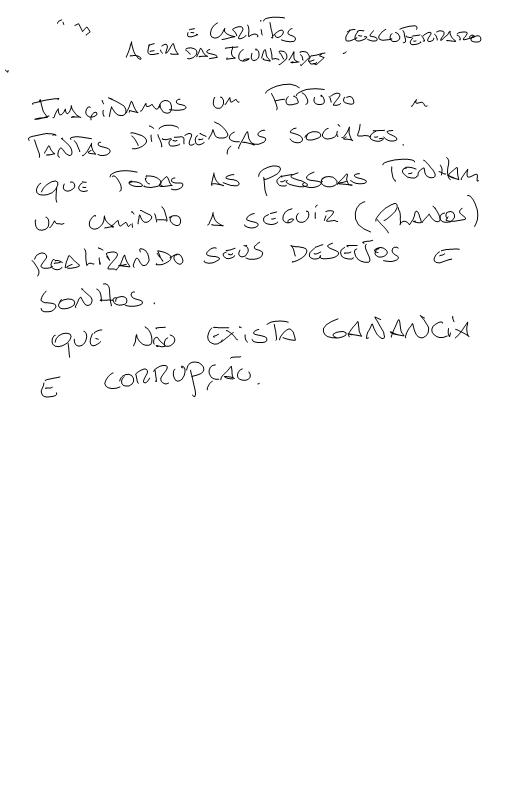 E CARLITOS
A ERA DAS IGUALDADES.
IMAGINAMOS UM FUTURO
TANTAS DIFERENÇAS SOCIALES.
QUE TODAS AS PESSOAS TENHAM
UM CAMINHO A SEGUIR (PLANOS)
REALIZANDO SEUS DESEJOS E
SONHOS.
QUE NÃO EXISTA GANANCIA
E CORRUPÇÃO.